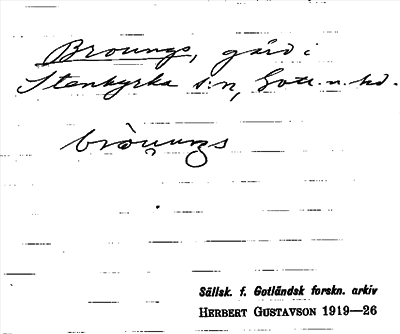 Broungs, gård i
Stenkyrka s:n, Gotl. n. hd.
bròu̯ngs
Sällsk. f. Gotländsk forskn. arkiv
HERBERT GUSTAVSON 1919—26